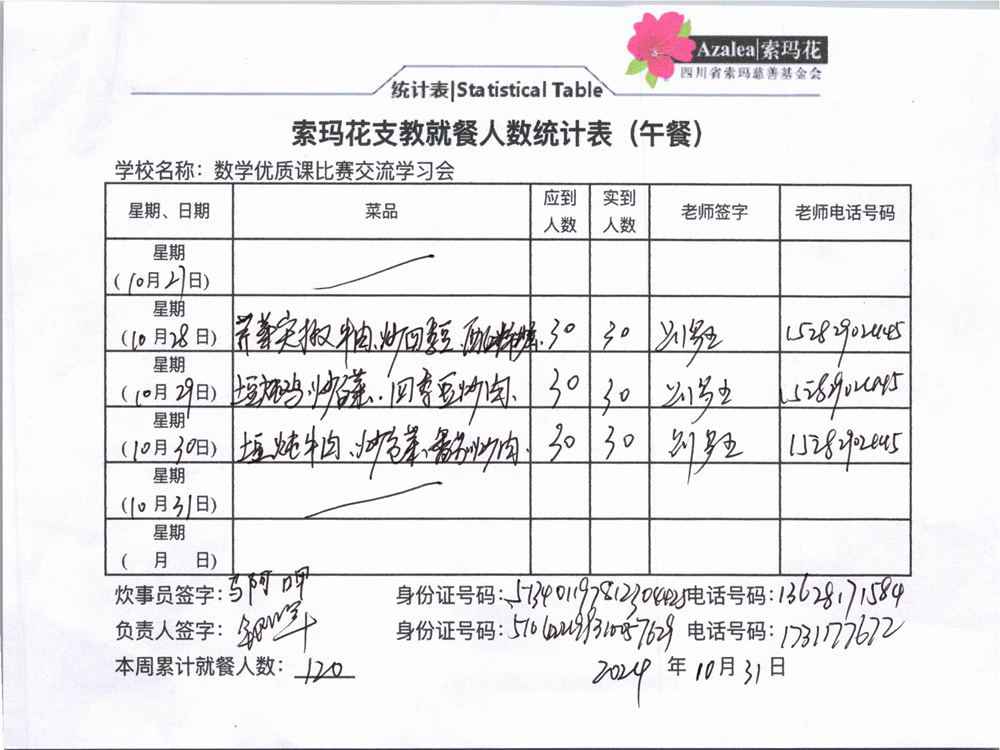 Azalea|索玛花
四川省索玛慈善基金会
统计表|Statistical Table
索玛花支教就餐人数统计表（午餐）
学校名称：数学优质课比赛交流学习会
星期、日期 菜品 应到人数 实到人数 老师签字 老师电话号码
星期
(10月27日)
星期
(10月28日) 牛肉、炒四季豆、 30 30
星期
(10月29日) 炒白菜、四季豆炒肉、 30 30
星期
(10月30日) 炖牛肉、炒白菜、 炒肉、 30 30
星期
(10月31日)
星期
( 月 日)
炊事员签字：马阿呷 身份证号码： 电话号码：13628171584
负责人签字： 身份证号码： 电话号码：
本周累计就餐人数：120 2024年10月31日